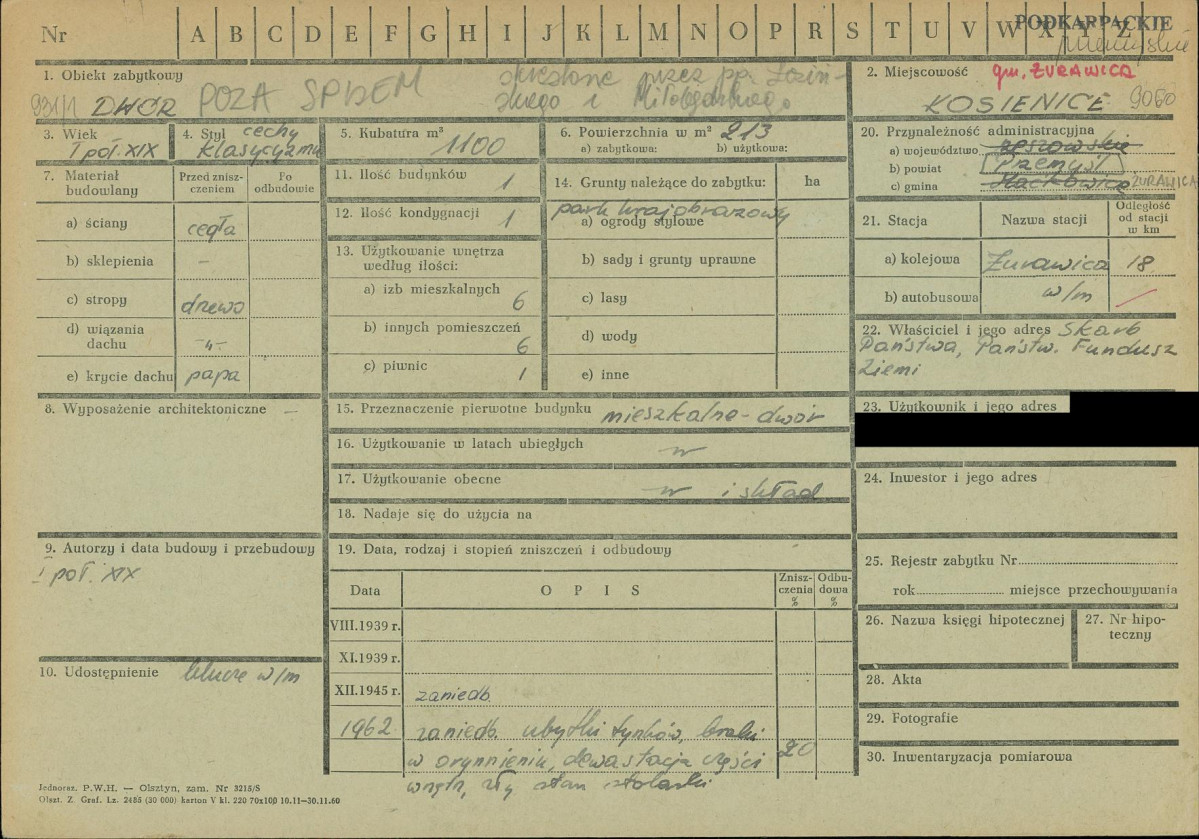 Nr A B C D E F G H I J K L M N O P R S T U V W X Y Z PODKARPACKIE
przemyskie
1. Obiekt zabytkowy
931/1 DWÓR POZA SPISEM
skreślone przez pp. Łoziń-
skiego i Miłobędzkiego
2. Miejscowość gm. ŻURAWICA
KOSIENICE 9060
3. Wiek
I poł. XIX
4. Styl cechy
klasycyzmu
5. Kubatura m³
1100
6. Powierzchnia w m² 213
a) zabytkowa: b) użytkowa:
7. Materiał budowlany
Przed znisz-
czeniem
Po
odbudowie
a) ściany cegła
b) sklepienia –
c) stropy drewo
d) wiązania
dachu -"-
e) krycie dachu papa
8. Wyposażenie architektoniczne –
9. Autorzy i data budowy i przebudowy
I poł. XIX
10. Udostępnienie klucze w/m
11. Ilość budynków 1
12. Ilość kondygnacji 1
13. Użytkowanie wnętrza
według ilości:
a) izb mieszkalnych 6
b) innych pomieszczeń 6
c) piwnic 1
14. Grunty należące do zabytku: ha
park krajobrazowy
a) ogrody stylowe
b) sady i grunty uprawne
c) lasy
d) wody
e) inne
15. Przeznaczenie pierwotne budynku mieszkalne - dwór
16. Użytkowanie w latach ubiegłych -"-
17. Użytkowanie obecne -"- i skład
18. Nadaje się do użycia na
19. Data, rodzaj i stopień zniszczeń i odbudowy
Data O P I S Znisz-
czenia
% Odbu-
dowa
%
VIII.1939 r.
XI.1939 r.
XII.1945 r. zaniedb.
1962 zaniedb. ubytki tynków, braki
w orynnieniu, dewastacja części 20
wnętrz, zły stan stolarki
20. Przynależność administracyjna
a) województwo rzeszowskie
b) powiat Przemyśl
c) gmina Maćkowice ŻURAWICA
21. Stacja Nazwa stacji Odległość
od stacji
w km
a) kolejowa Żurawica 18
b) autobusowa w/m
22. Właściciel i jego adres Skarb
Państwa, Państw. Fundusz
Ziemi
23. Użytkownik i jego adres
24. Inwestor i jego adres
25. Rejestr zabytku Nr
rok miejsce przechowywania
26. Nazwa księgi hipotecznej
27. Nr hipo-
teczny
28. Akta
29. Fotografie
30. Inwentaryzacja pomiarowa
Jednoraz. P.W.H. — Olsztyn, zam. Nr 3215/S
Olszt. Z. Graf. Lz. 2485 (30 000) karton V kl. 220 70x100 10.11—30.11.60